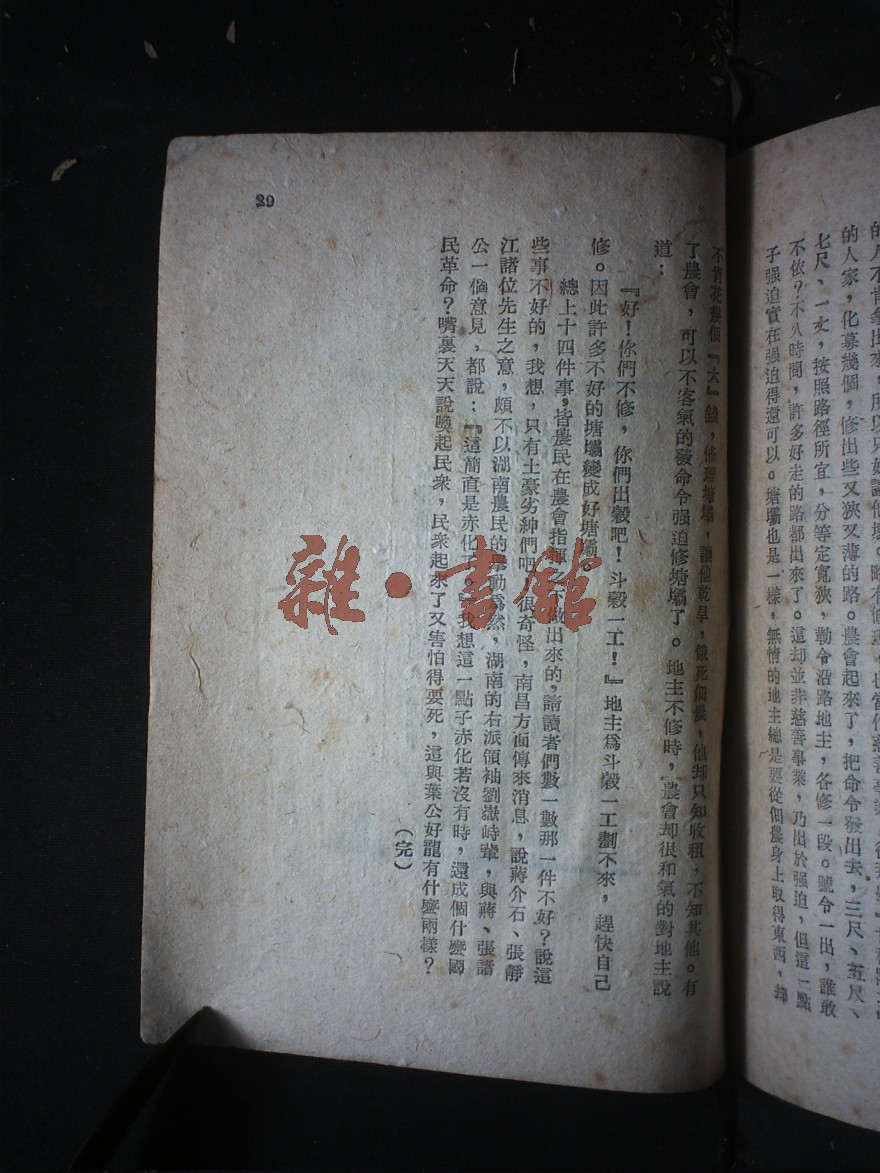 的人家，化募幾個，修出些又狹又薄的路。農會起來了，把命令發出去，三尺、五尺、
七尺、一丈，按照路徑所宜，分等定寬狹，勒令沿路地主，各修一段。號令一出，誰敢
不依？不久時間，許多好走的路都出來了。這却並非慈善事業，乃出於强迫，但這一點
子强迫實在强迫得還可以。塘壩也是一樣，無情的地主總是要從佃農身上取得東西，却
不肯花幾個『大』錢，修理塘壩，讓他乾旱，餓死佃農，他却只知收租，不知其他。有
了農會，可以不客氣的發命令强迫修塘壩了。地主不修時，農會却很和氣的對地主說
道：
『好！你們不修，你們出穀吧！斗穀一工！』地主爲斗穀一工劃不來，趕快自己
修。因此許多不好的塘壩變成好塘壩。
總上十四件事，皆農民在農會指揮之下做出來的，請讀者們數一數那一件不好？說這
些事不好的，我想，只有土豪劣紳們吧！很奇怪，南昌方面傳來消息，說蔣介石、張靜
江諸位先生之意，頗不以湖南農民的舉動爲然，湖南的右派領袖劉嶽峙輩，與蔣、張諸
公一個意見，都說：『這簡直是赤化了。』我想這一點子赤化若沒有時，還成個什麼國
民革命？嘴裏天天說喚起民衆，民衆起來了又害怕得要死，這與葉公好龍有什麼兩樣？
（完）
29
雜·書館